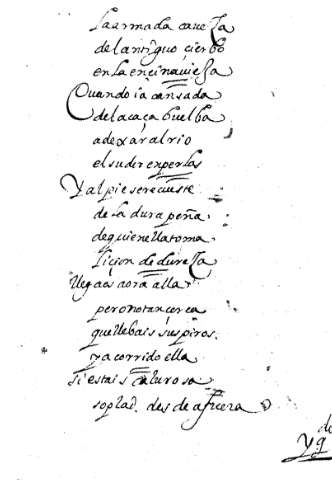 la armada caueza
del antiguo cierbo
en la encina uieja
Quando ia cansada
de la caça buelba
a dexar al rio
el sudor en perlas
Y al pie se recueste
de la dura peña
de quien ella toma
licion de dureza
llegaos a orealla
pero no tan cerca
que llebais suspiros
ya corrido ella
si estais caluroso
soplad desde afuera
y q